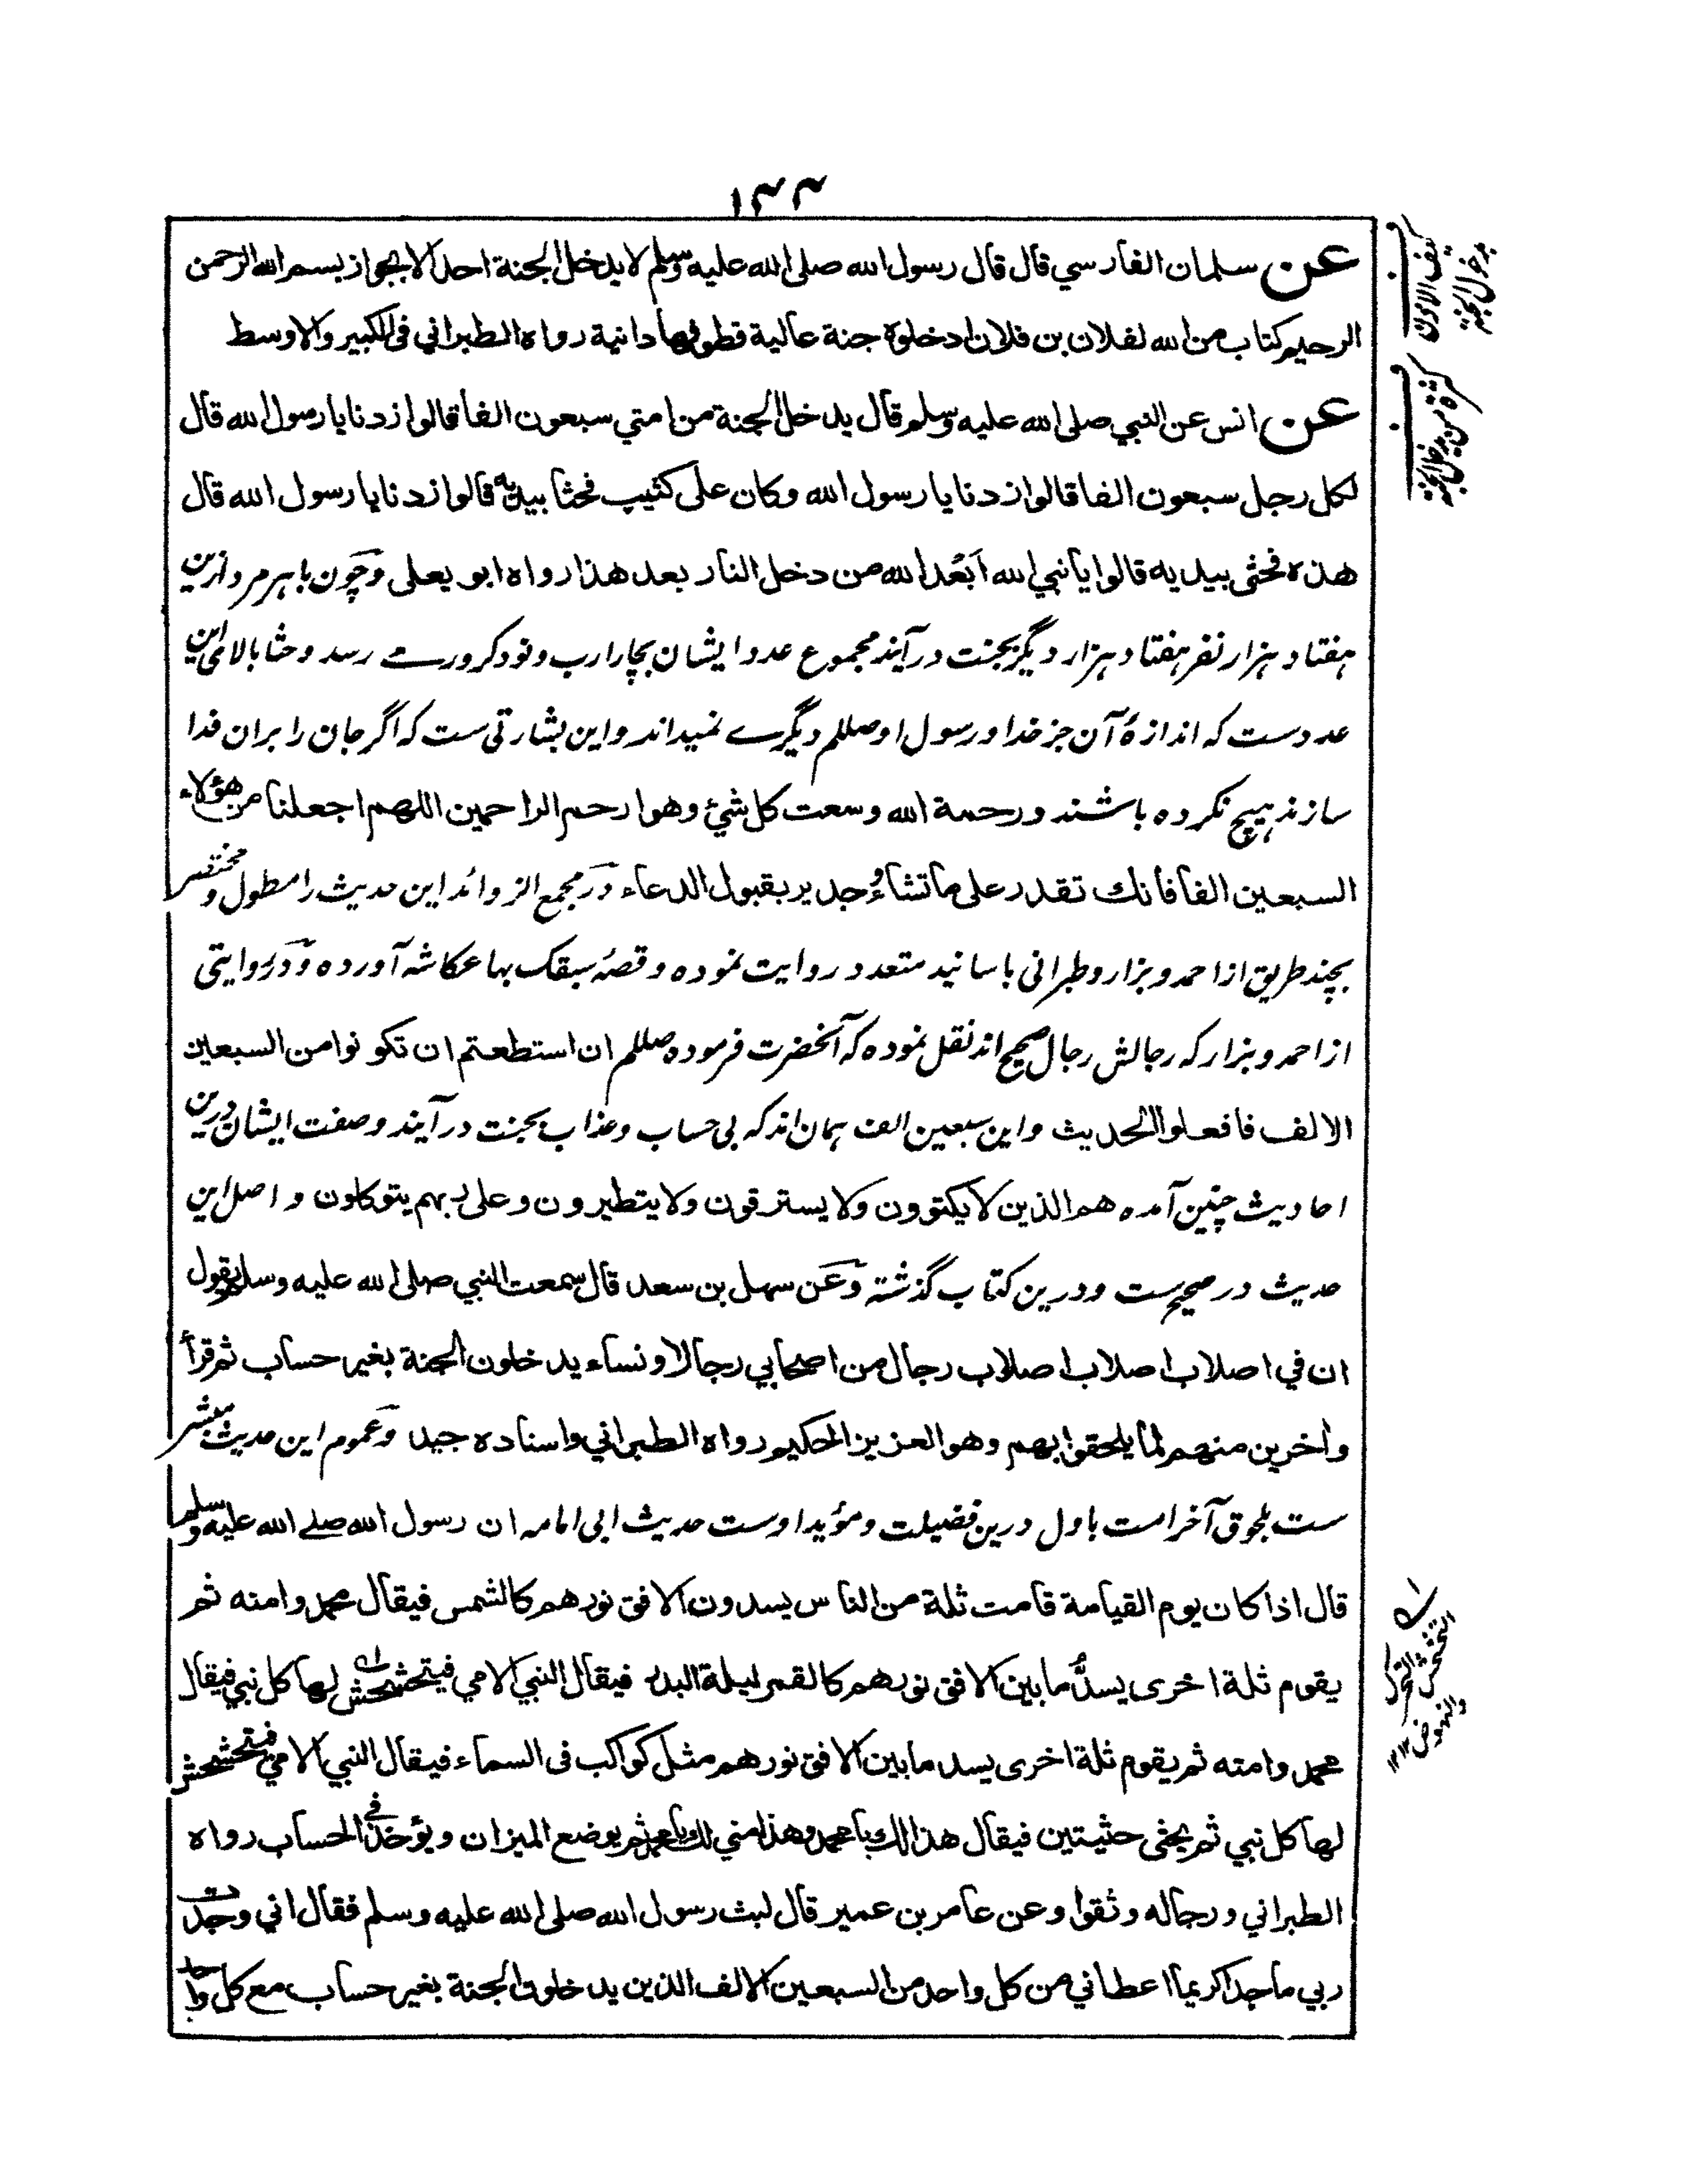 ۱۳۳
عن سلمان الفارسي قال قال رسول الله صلى الله عليه وسلم لا يدخل الجنة احد الا بجواز بسم الله الرحمن
الرحيم كتاب من الله لفلان بن فلان ادخلوه جنة عالية قطوفها دانية رواه الطبراني فى الكبير والاوسط
عن انس عن النبي صلى الله عليه وسلم قال يدخل الجنة من امتي سبعون الفا قالوا زدنا يا رسول الله قال
لكل رجل سبعون الفا قالوا زدنا يا رسول الله وكان على كثيب فحثا بيديه قالوا زدنا يا رسول الله قال
هذه فحثى بيديه قالوا يا نبي الله اَبْعَدَ الله من دخل النار بعد هذا رواه ابو يعلى وچون با هر مرد ازین
هفتاد هزار نفر هفتاد هزار دیگر بجنت درآیند مجموع عدد ایشان بچار ارب و نود کرور مے رسد و حثا بالامی این
عددست که اندازهٔ آن جز خدا و رسول او صللم دیگرے نمیداند و این بشارتی ست که اگر جان را بران فدا
سازند هیچ نکرده باشند ورحمة الله وسعت كل شئ وهو ارحم الراحمين اللهم اجعلنا من هؤلاء
السبعين الفا فانك تقدر على ما تشاء وجدير بقبول الدعاء در مجمع الزوائد این حدیث را مطول و مختصر
بچند طریق از احمد و بزار و طبرانی باسانید متعدد روایت نموده و قصهٔ سبقک بها عکاشه آورده و در روایتی
از احمد و بزار که رجالش رجال صحیح اند نقل نموده که آنحضرت فرموده صللم ان استطعتم ان تكونوا من السبعين
الالف فافعلوا الحديث و این سبعین الف همان اند که بی حساب و عذاب بجنت درآیند و صفت ایشان درین
احادیث چنین آمده هم الذين لا يكتوون ولا يسترقون ولا يتطيرون وعلى ربهم يتوكلون و اصل این
حدیث در صحیح ست و درین کتاب گذشته وعن سهل بن سعد قال سمعت النبي صلى الله عليه وسلم يقول
ان في اصلاب اصلاب اصلاب رجال من اصحابي رجالا ونساء يدخلون الجنة بغير حساب ثم قرأ
وأخرين منهم لما يلحقوا بهم وهو العزيز الحكيم رواه الطبراني واسناده جيد و عموم این حدیث مبشر
ست بلحوق آخر امت باول درین فضیلت و مؤید اوست حدیث ابی امامه ان رسول الله صلے الله عليه وسلم
قال اذا كان يوم القيامة قامت ثلة من الناس يسدون الافق نورهم كالشمس فيقال محمد وامته ثم
يقوم ثلة اخرى يسدُّ ما بين الافق نورهم كالقمر ليلة البدر فيقال النبي الامي فيتحشحش لها كل نبي فيقال
محمد وامته ثم يقوم ثلة اخرى يسد ما بين الافق نورهم مثل كواكب فى السماء فيقال النبي الامي فيتحشحش
لها كل نبي ثم يحثى حثيتين فيقال هذا لك يا محمد وهذا مني لك يا محمد ثم يوضع الميزان ويؤخذ في الحساب رواه
الطبراني ورجاله وثقوا وعن عامر بن عمير قال لبث رسول الله صلى الله عليه وسلم فقال اني وجدت
ربي ماجدا كريما اعطاني من كل واحد من السبعين الالف الذين يدخلون الجنة بغير حساب مع كل واحد
كثرة من يدخل الجنة
التحشحش التحرك
والنهوض ۱۲